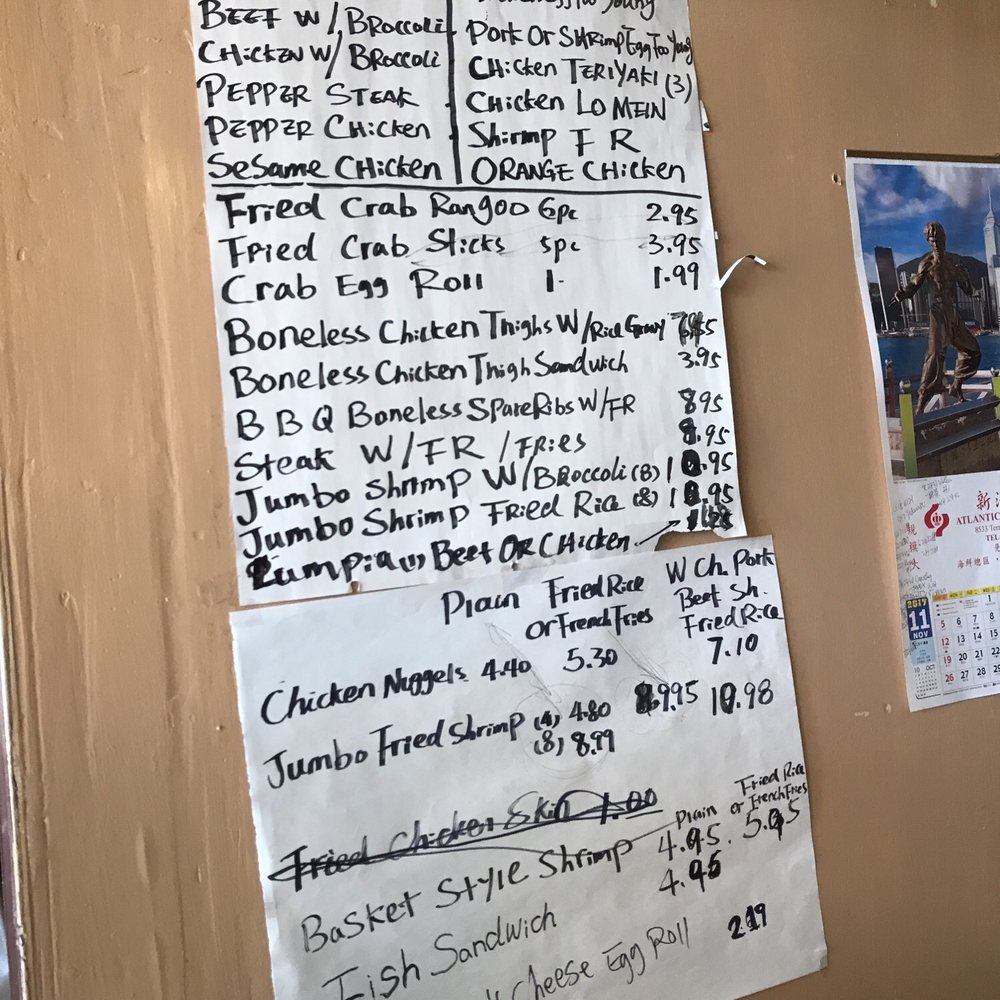 BEEF W/BROCCOLI
CHICKEN W/BROCCOLI
PEPPER STEAK
PEPPER CHICKEN
SESAME CHICKEN
Young
Pork Or SHRimp Egg Foo Young
CHicken TERIYAKI (3)
CHicken LO MEIN
Shrimp F R
ORANGE CHicken
Fried Crab Rangoo 6pc 2.95
Fried Crab Sticks 5pc 3.95
Crab Egg Roll 1- 1.99
Boneless Chicken Thighs W/Rice Gravy
Boneless Chicken Thigh Sandwich 3.95
B B Q Boneless SpareRibs W/FR 8.95
Steak W/FR/FRies 8.95
Jumbo Shrimp W/BRoccoli (8) 10.95
Jumbo Shrimp Fried Rice (8) 10.95
Lumpia (1) Beef OR CHicken
Plain Fried Rice or French Fries W Ch. Pork Beef Sh. Fried Rice
Chicken Nuggels 4.40 5.30 7.10
Jumbo Fried Shrimp (4) 4.80 10.98
(8) 8.99
Fried Chicken Skin 1.00
Plain Fried Rice or French Fries
Basket Style Shrimp 4.95 5.95
Fish Sandwich 4.95
Cheese Egg Roll 2.19
ATLANTIC
8533
TEL
2017
11
NOV
10 OCT
1
5 6 7 8
12 13 14 15
19 20 21 22
26 27 28 29